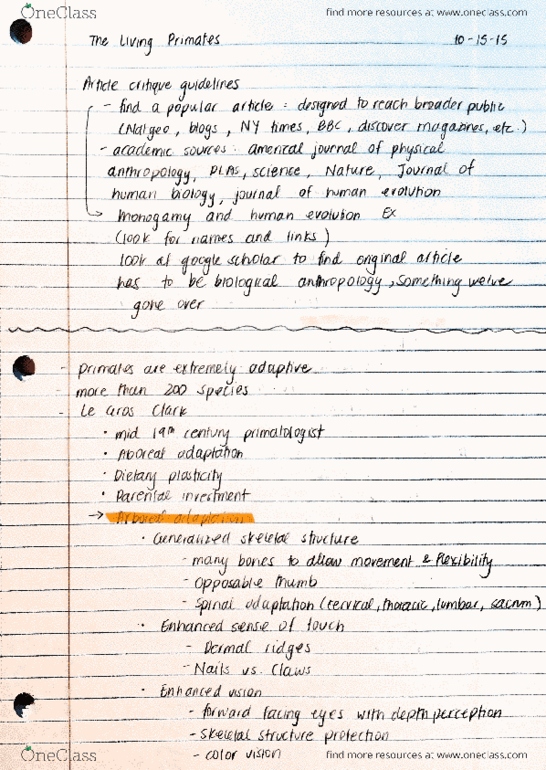 OneClass find more resources at www.oneclass.com
The Living Primates 10-15-15
Article critique guidelines
- find a popular article : designed to reach broader public
(Nat geo, blogs, NY times, BBC, discover magazines, etc.)
- academic sources : americal journal of physical
anthropology, PLAS, science, Nature, Journal of
human biology, journal of human evolution
Monogamy and human evolution Ex
(look for names and links)
look at google scholar to find original article
has to be biological anthropology, something we've
gone over
- primates are extremely adaptive
- more than 200 species
- Le Gros Clark
• mid 19th century primatologist
• Aboreal adaptation
• Dietary plasticity
• Parental investment
→ Arboreal adaptation
• Generalized skeletal structure
- many bones to allow movement & flexibility
- opposable thumb
- spinal adaptation (cervical, thoracic, lumbar, sacrum)
• Enhanced sense of touch
- Dermal ridges
- Nails vs. Claws
• Enhanced vision
- forward facing eyes with depth perception
- skeletal structure protection
- color vision
OneClass find more resources at www.oneclass.com